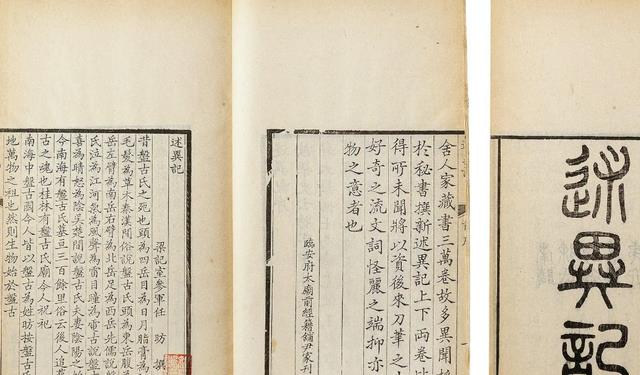 述異記
舍人家藏書三萬卷故多異聞採
於秘書撰新述異記上下兩卷
得所未聞將以資後來刀筆之
好奇之流文詞怪麗之端抑亦
物之意者也
臨安府太廟前經籍鋪尹家刊
述異記
梁記室參軍任 昉 撰
昔盤古氏之死也頭為四岳目為日月脂膏為
毛髮為草木秦漢間俗說盤古氏頭為東岳腹為
岳左臂為南岳右臂為北岳足為西岳先儒說
氏泣為江河氣為風聲為雷目瞳為電古說盤
喜為晴怒為陰吳楚間說盤古氏夫妻陰陽之
今南海有盤古氏墓亘三百餘里俗云後人追葬
古之魂也桂林有盤古氏廟今人祝祀
南海中盤古國今人皆以盤古為姓昉按盤古
地萬物之祖也然則生物始於盤古